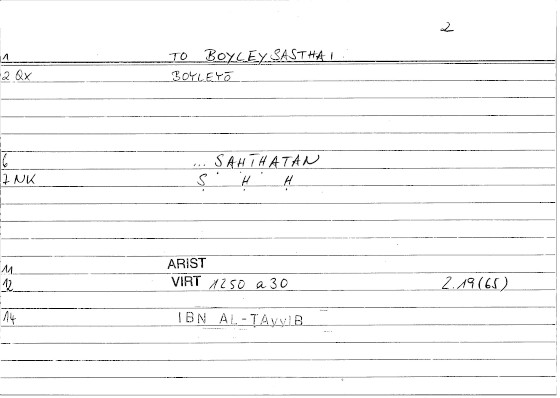 2
1 TO BOYLEYSASTHAI
2 QX BOYLEYŌ
6 ... SAHĪHATAN
7 NK Ṣ Ḥ Ḥ
11 ARIST
12 VIRT 1250 a30 2.19(65)
14 IBN AL-ṬAyyIB